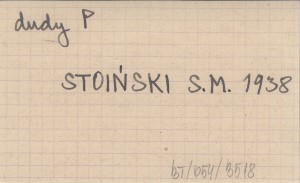 dudy P
STOIŃSKI S.M. 1938
bT/054/3518